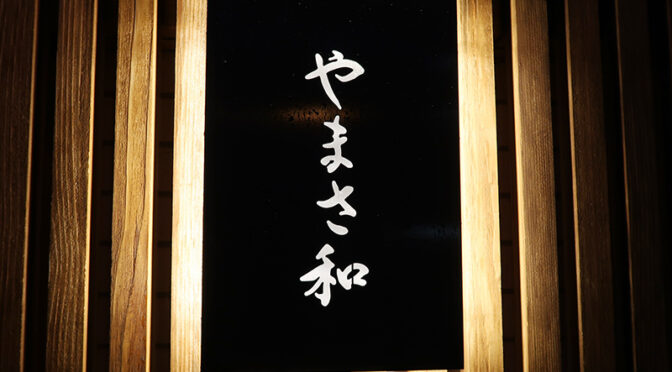 やまさ和